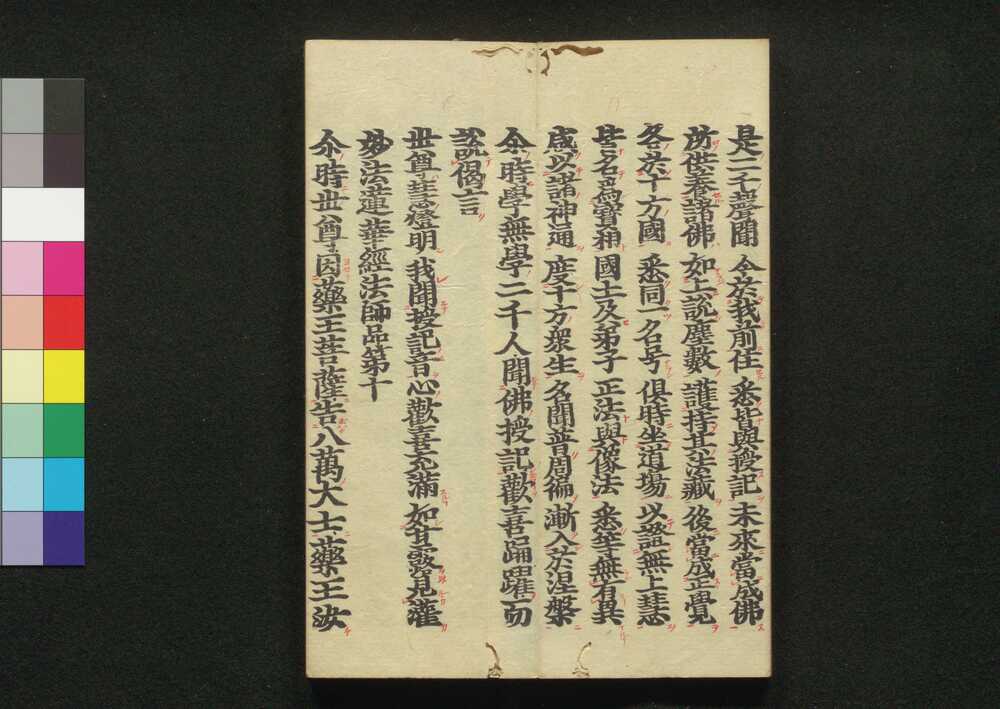 是二千聲聞 今於我前住 悉皆與授記 未來當成佛
所供養諸佛 如上說塵數 護持其法藏 後當成正覺
各於十方國 悉同一名号 俱時坐道場 以證無上慧
皆名爲寶相 國土及弟子 正法與像法 悉等無有異
咸以諸神通 度十方衆生 名聞普周徧 漸入於涅槃
尒時學無學二千人聞佛授記歡喜踊躍而
說偈言
世尊慧燈明 我聞授記音 心歡喜充滿 如甘露見灌
妙法蓮華經法師品第十
尒時世尊因藥王菩薩告八萬大士藥王汝